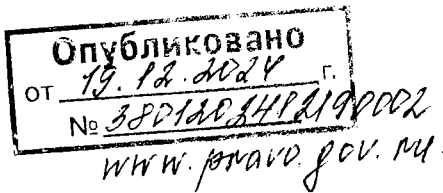 Опубликовано
от 19.12.2024 г.
№ 3801202412190002
www.pravo.gov.ru.